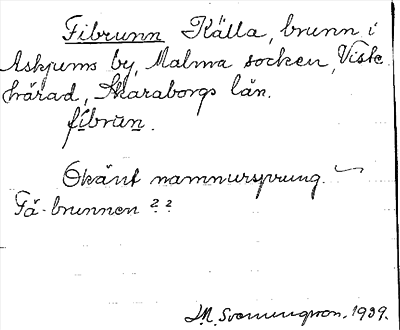 Fibrunn Källa, brunn i
Askjums by, Malma socken, Viste
härad, Skaraborgs län.
fíbrun.
Okänt namnursprung.
Fä-brunnen ??
M. Svenungsson. 1939.